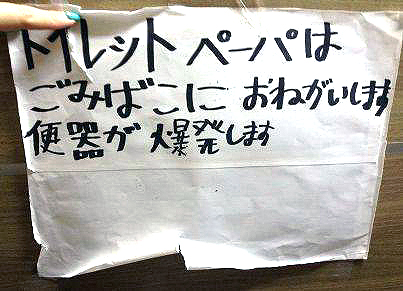 トイレットペーパは
ごみばこに おねがいします
便器が 爆発します